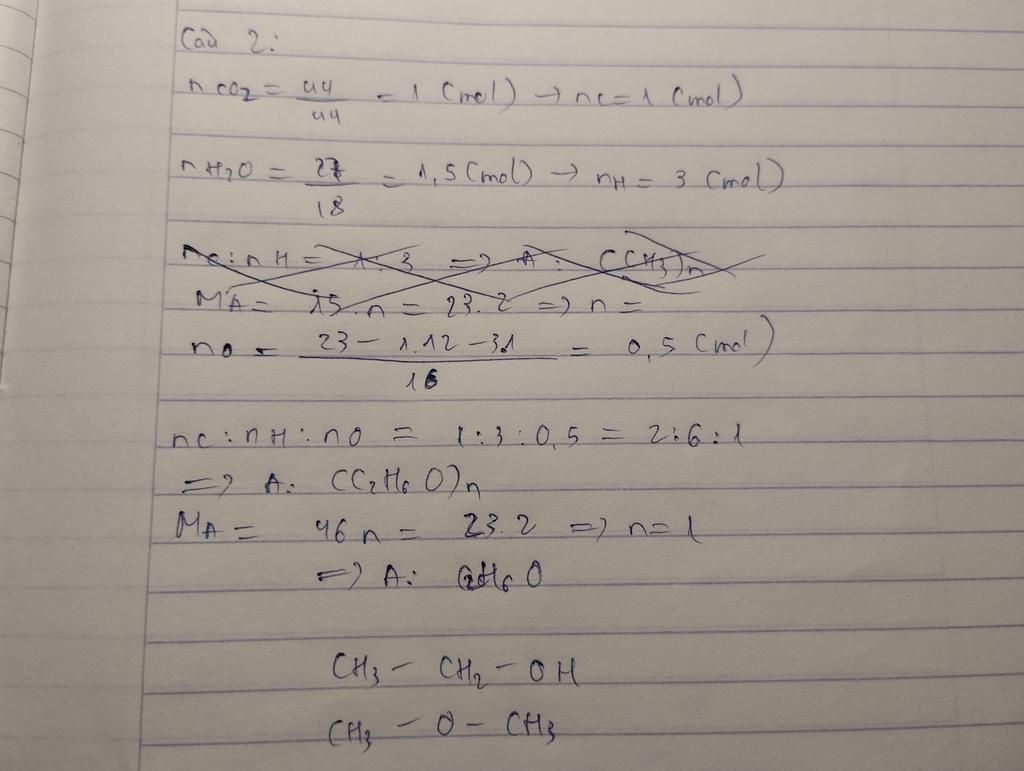 Câu 2:
nCO2 = 44/44 = 1 (mol) → nC = 1 (mol)
nH2O = 27/18 = 1,5 (mol) → nH = 3 (mol)
nC : nH = 1 : 3 => A: (CH3)n
MA = 15.n = 23.2 => n =
nO = (23 - 1.12 - 3.1)/16 = 0,5 (mol)
nC : nH : nO = 1 : 3 : 0,5 = 2 : 6 : 1
=> A: (C2H6O)n
MA = 46n = 23.2 => n = 1
=> A: C2H6O
CH3 - CH2 - OH
CH3 - O - CH3